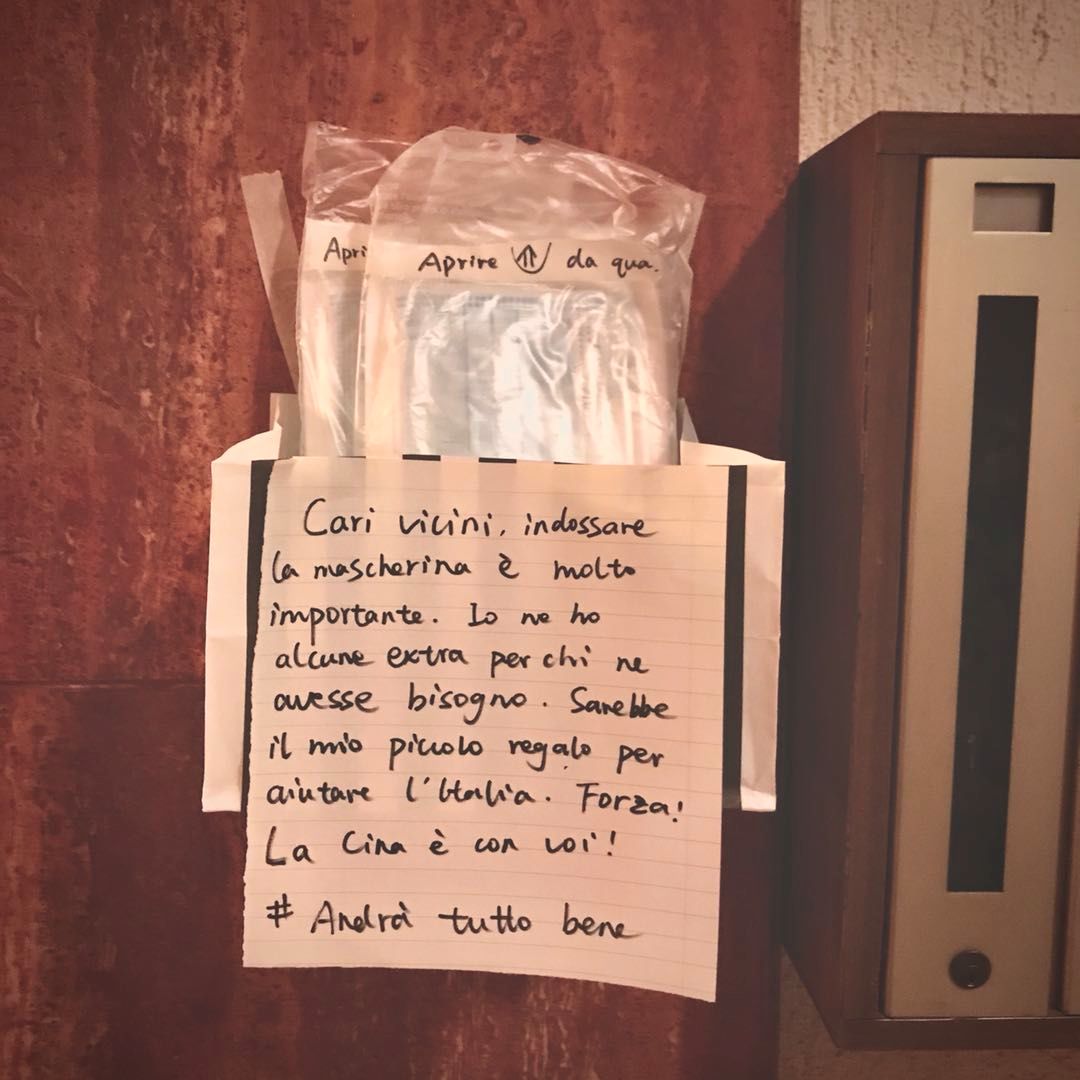 Apri
Aprire da qua.
Cari vicini, indossare
la mascherina è molto
importante. Io ne ho
alcune extra per chi ne
avesse bisogno. Sarebbe
il mio piccolo regalo per
aiutare l'Italia. Forza!
La Cina è con voi!
# Andrà tutto bene